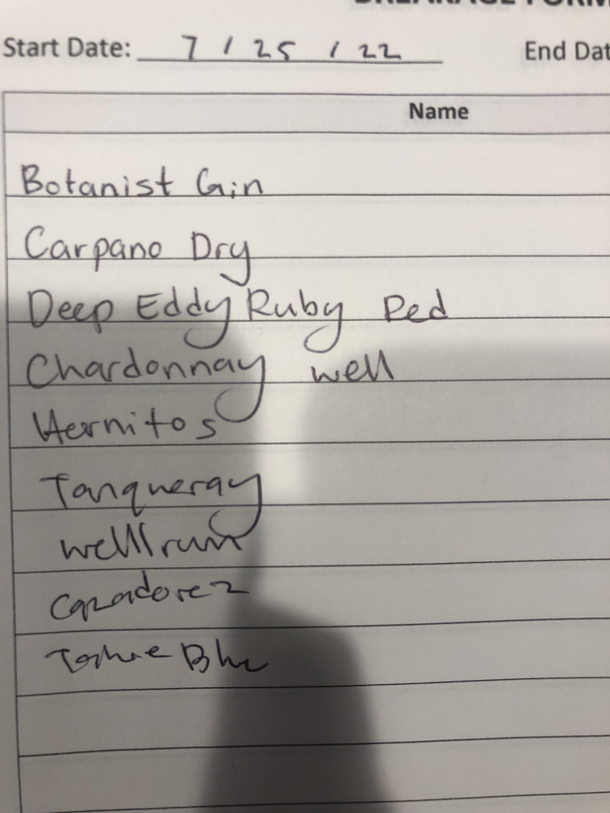 BREAKAGE FORM
Start Date: 7 / 25 / 22 End Dat
Name
Botanist Gin
Carpano Dry
Deep Eddy Ruby Red
Chardonnay well
Hornitos
Tanqueray
well rum
Cazadorez